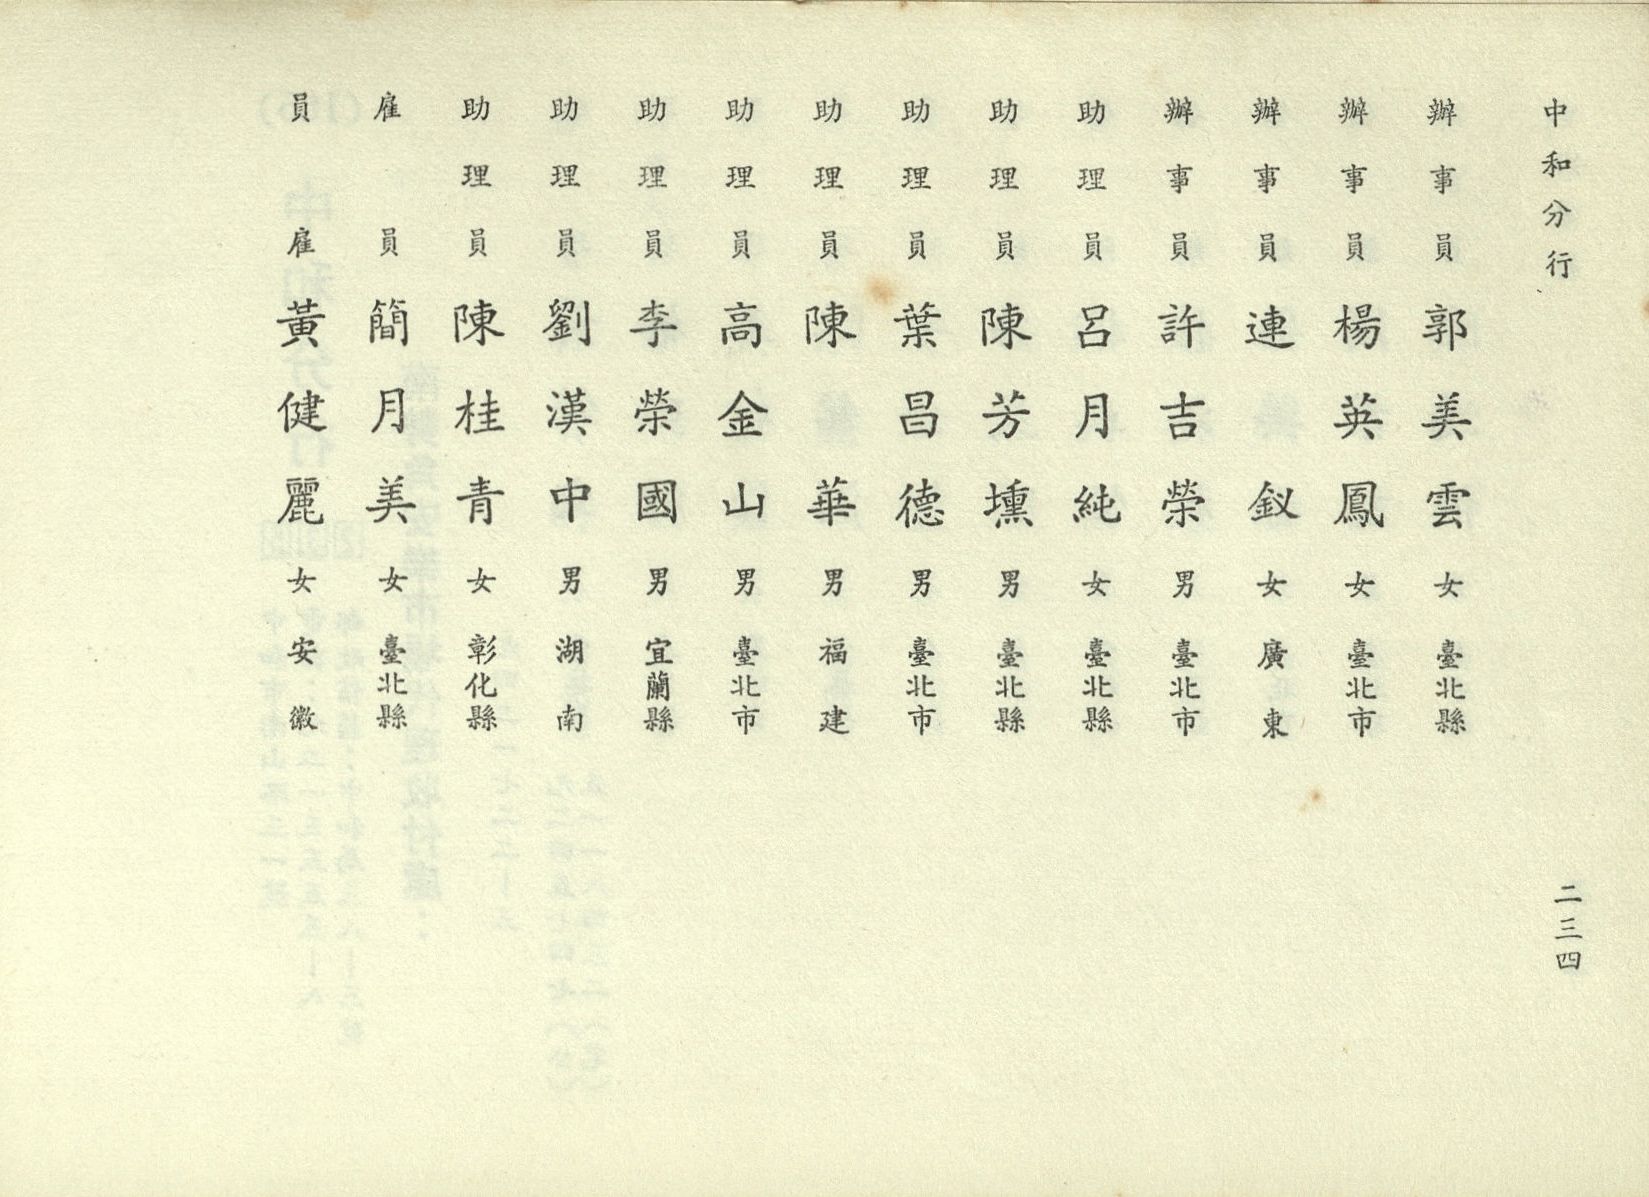 中和分行
二三四
辦事員 郭美雲 女 臺北縣
辦事員 楊英鳳 女 臺北市
辦事員 連釵 女 廣東
辦事員 許吉榮 男 臺北市
助理員 呂月純 女 臺北縣
助理員 陳芳壎 男 臺北縣
助理員 葉昌德 男 臺北市
助理員 陳華 男 福建
助理員 高金山 男 臺北市
助理員 李榮國 男 宜蘭縣
助理員 劉漢中 男 湖南
助理員 陳桂青 女 彰化縣
雇員 簡月美 女 臺北縣
員雇 黃健麗 女 安徽